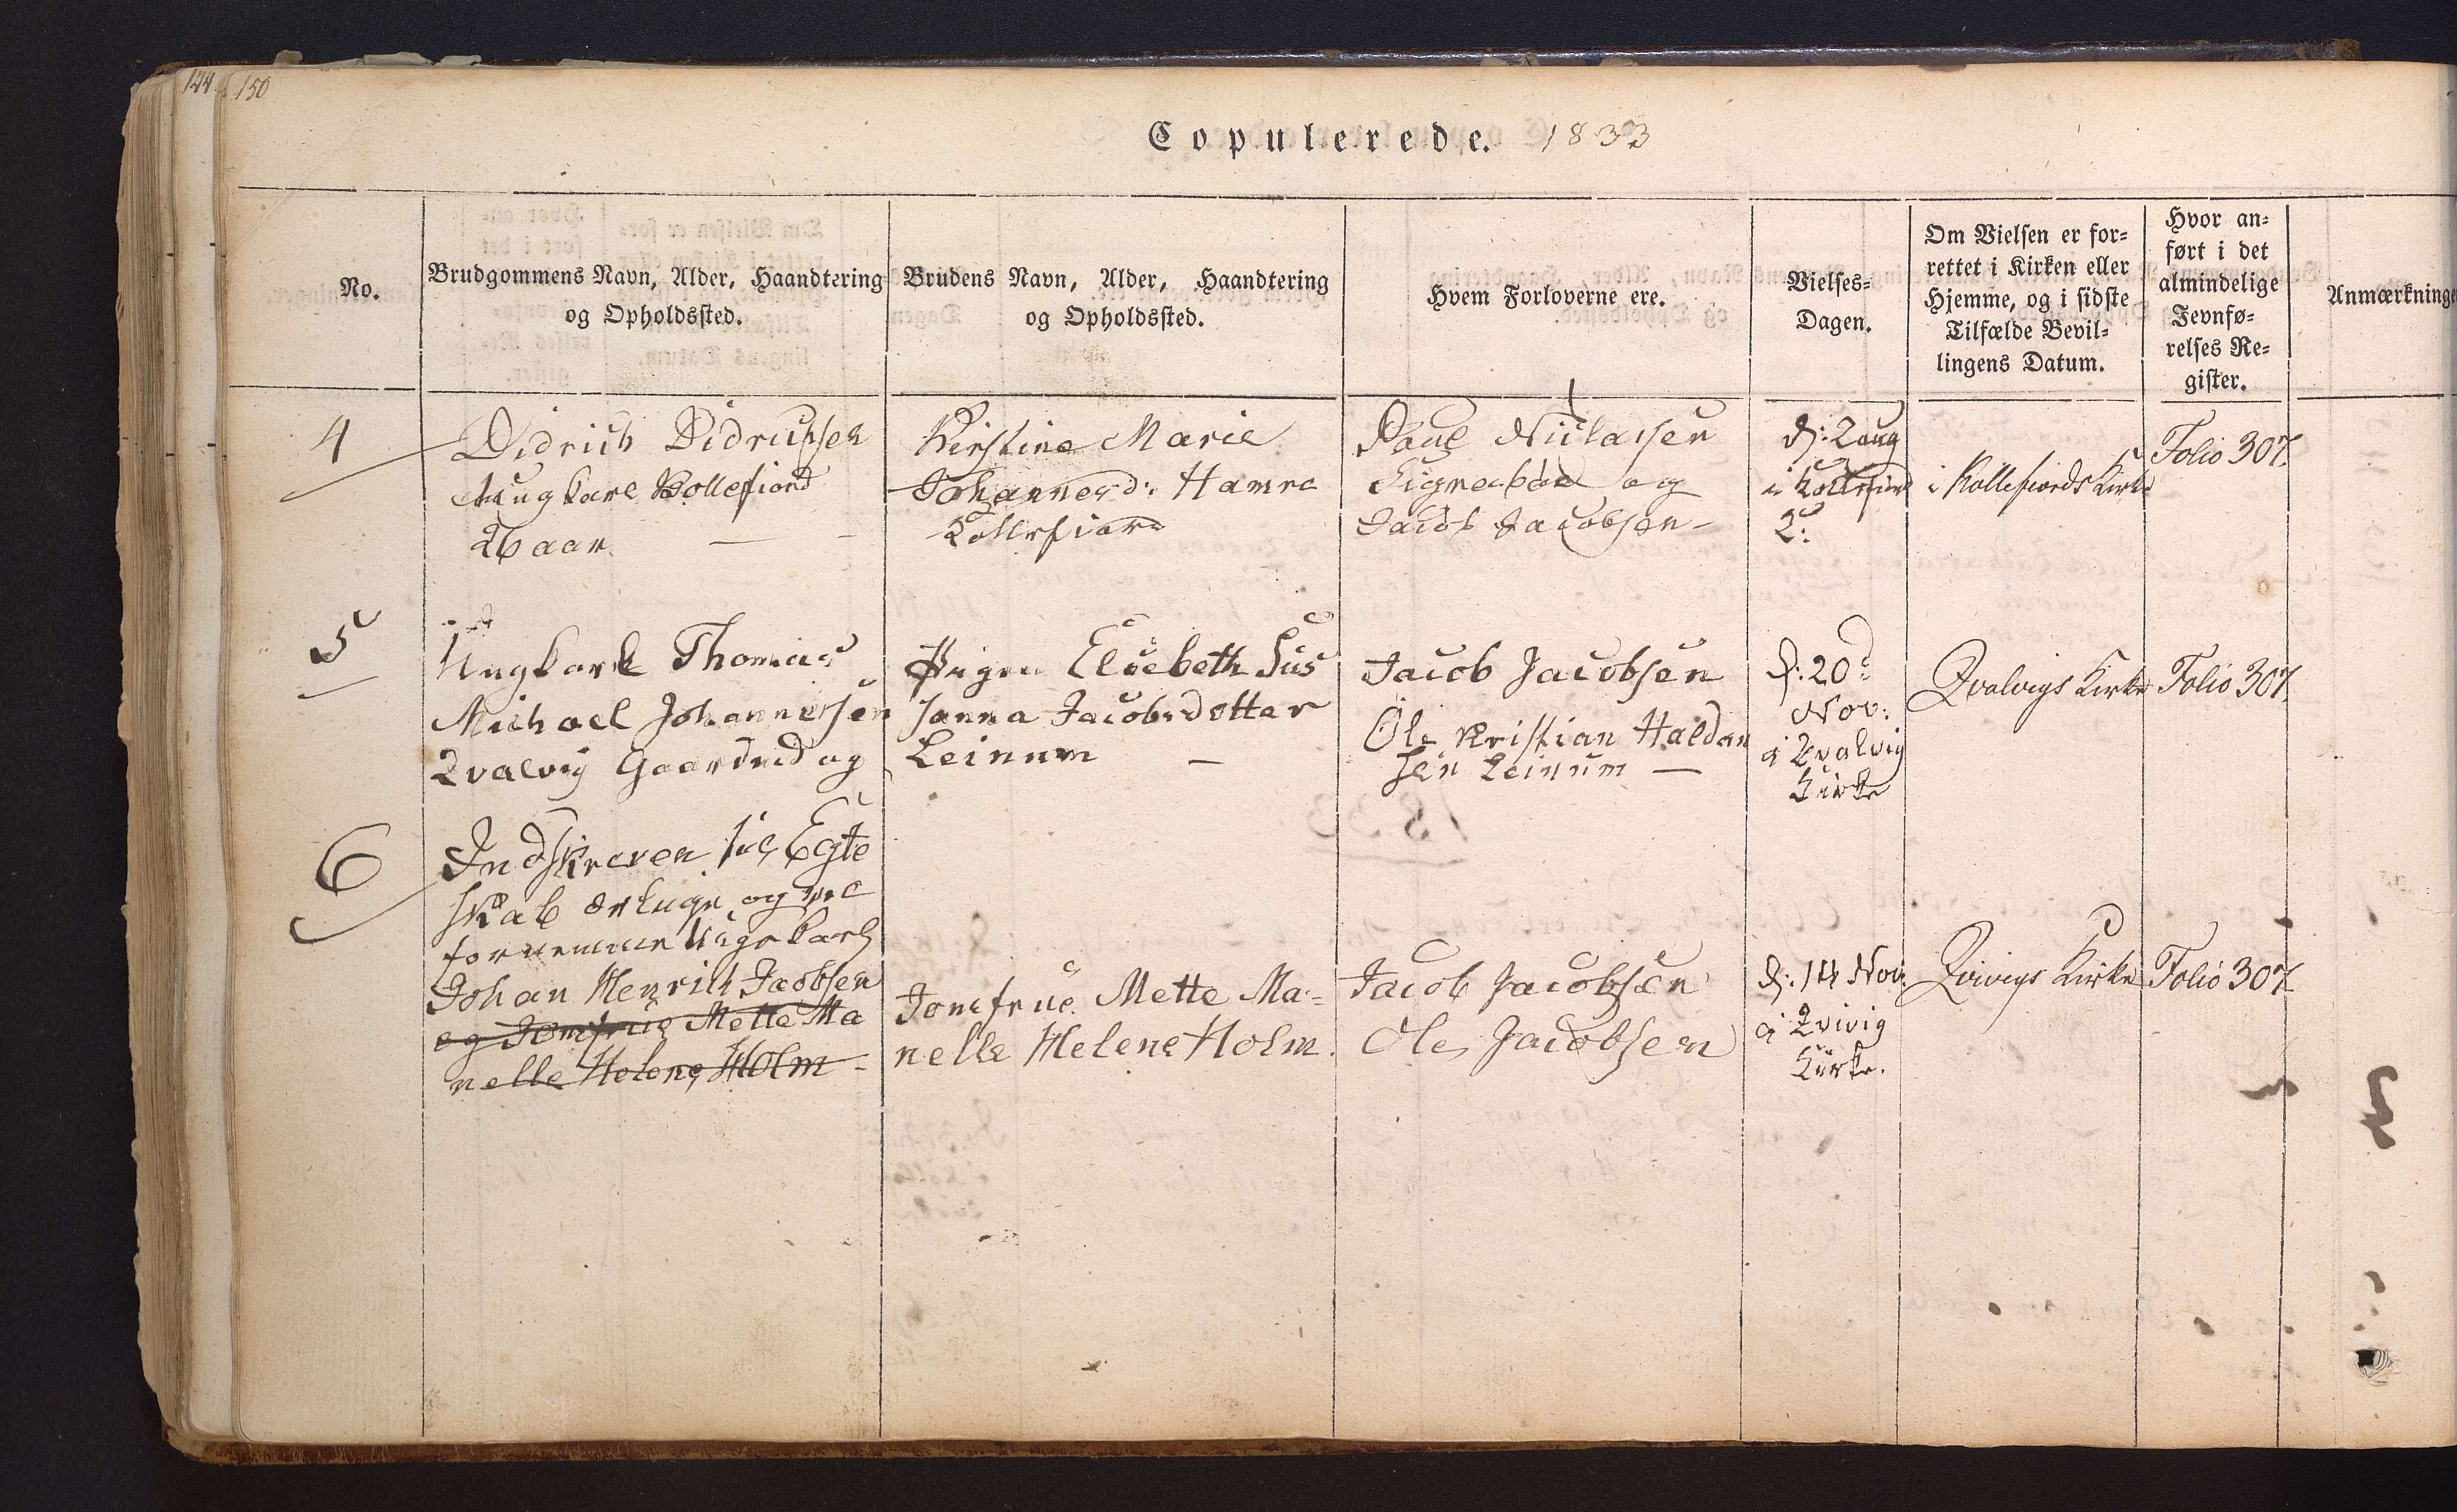 144 150
Copulerede. 1833
No.
Brudgommens Navn, Alder, Haandtering
og Opholdssted.
Brudens Navn, Alder, Haandtering
og Opholdssted.
Hvem Forloverne ere.
Vielses-
Dagen.
Om Vielsen er for-
rettet i Kirken eller
Hjemme, og i sidste
Tilfælde Bevil-
lingens Datum.
Hvor an-
ført i det
almindelige
Jevnfø-
relses Re-
gister.
Anmærkninge
4
Didrich Didrichsen
Ungkarl Kollefiord
26 aar.
Kirstine Marie
Johannesd: Hamre
Kollefiord
Poul Niclassen
Signebøe og
Jacob Jacobsen -
d: 2 aug
i Kollefiord
K:
i Kollefiords Kirke
Folio 307.
5
Ungkarl Thomas
Michael Johannessen
Qvalvig Gaardmd og
Pigen Elsebeth Sus
sanna Jacobsdotter
Leinum -
Jacob Jacobsen
Ole Kristian Haldan
sen Leinum -
d: 20d
Nov:
i Qvalvig
Kirke
Qvalvigs Kirke
Folio 307.
6
Indskreven til Egte
skab ærlige og vel
fornemme Ungekarl
Johan Henrich Jacobsen
og Jomfrue Mette Ma
nelle Helene Holm -
Jomfrue Mette Ma-
nelle Helene Holm.
Jacob Jacobsen
Ole Jacobsen
d: 14 Nov.
i Qvivig
Kirke.
Qvivigs Kirke
Folio 307.